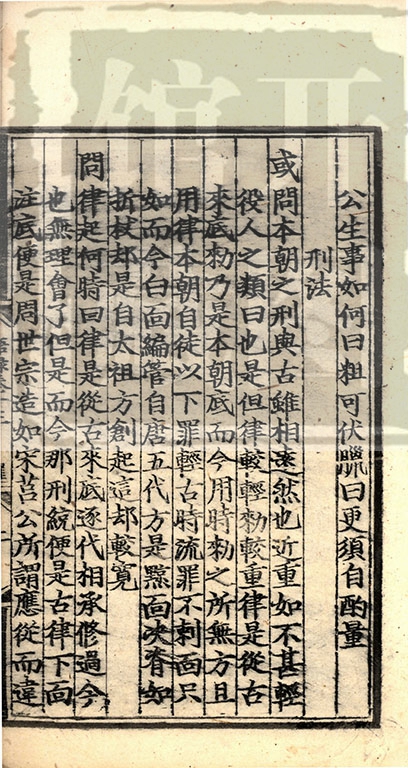 公生事如何曰粗可伏臘曰更須自酌量
刑法
或問本朝之刑與古雖相遠然也近重如不甚輕
役人之類曰也是但律較輕勑較重律是從古
來底勑乃是本朝底而今用時勑之所無方且
用律本朝自徒以下罪輕古時流罪不刺面只
如而今白面編管自唐五代方是黥面决脊如
折杖却是自太祖方創起這却較寬
問律起何時曰律是從古來底逐代相承修過今
也無理會了但是而今那刑統便是古律下面
注底便是周世宗造如宋莒公所謂應從而違